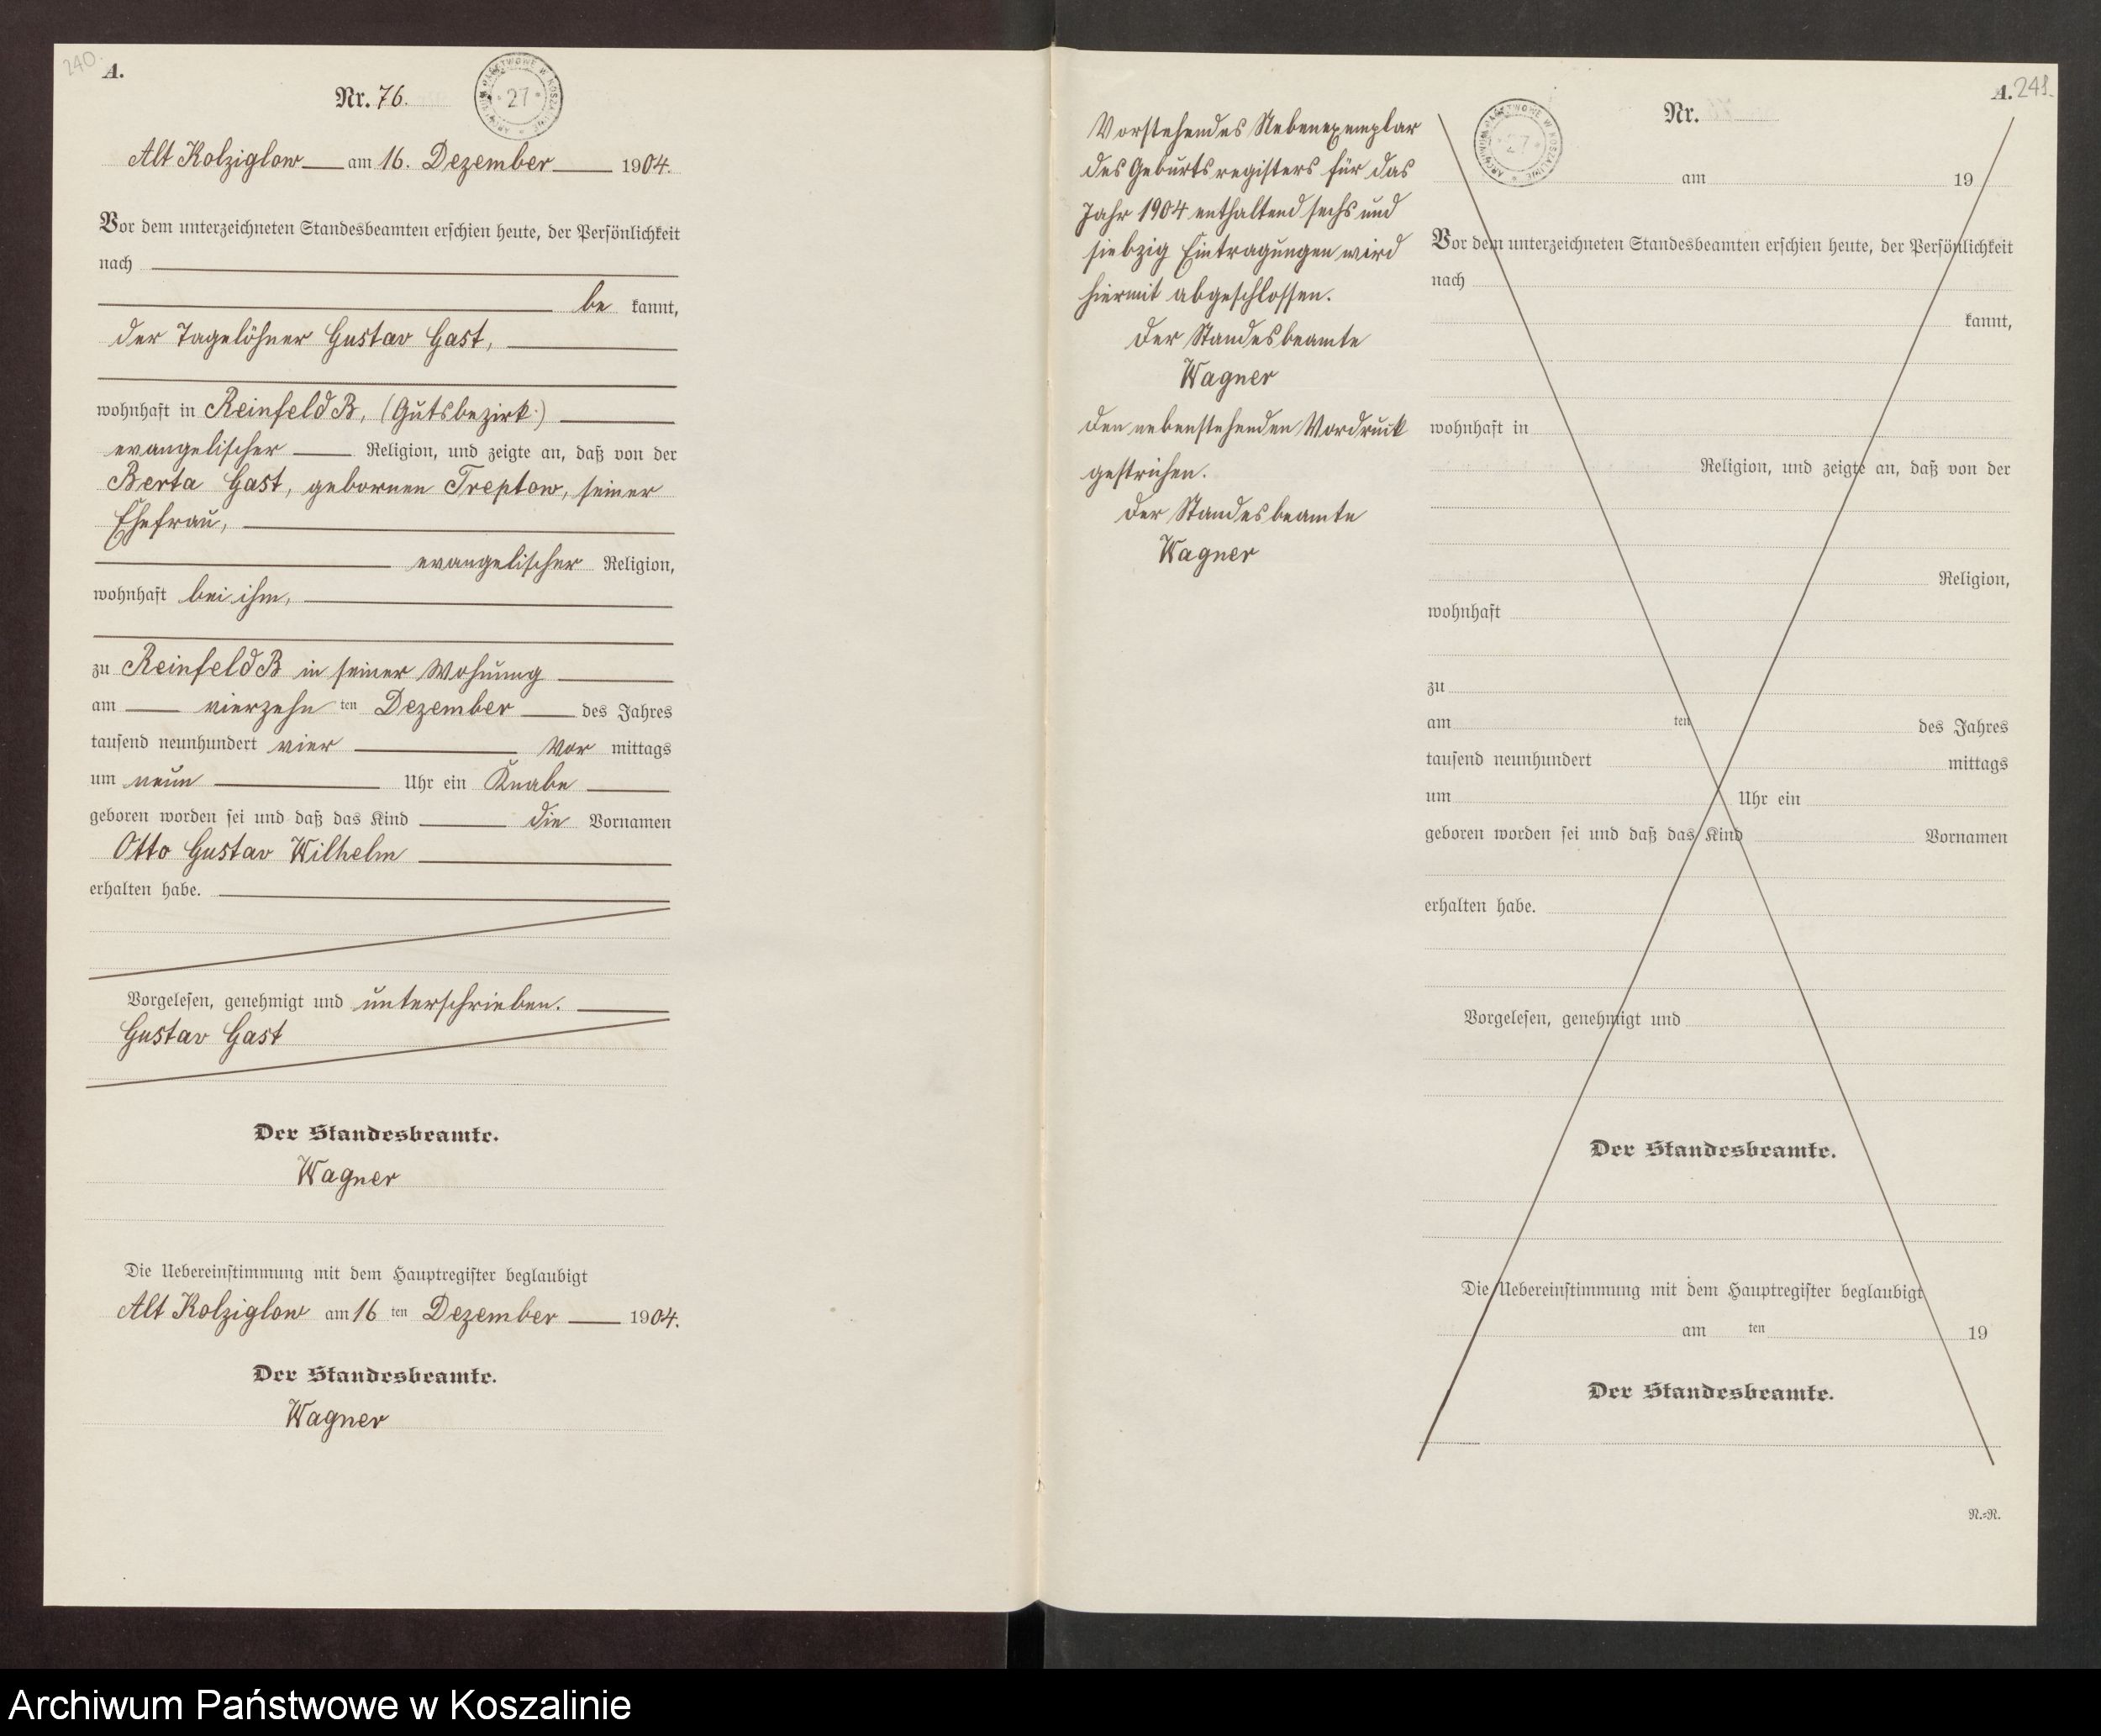 240.
A.
Nr. 76.
ARCHIWUM PAŃSTWOWE W KOSZALINIE
* 27 *
Alt Kolziglow am 16. Dezember 1904.
Vor dem unterzeichneten Standesbeamten erschien heute, der Persönlichkeit
nach
be kannt,
der Tagelöhner Gustav Gast,
wohnhaft in Reinfeld B, (Gutsbezirk)
evangelischer Religion, und zeigte an, daß von der
Berta Gast, gebornen Treptow, seiner
Ehefrau,
evangelischer Religion,
wohnhaft bei ihm,
zu Reinfeld B in seiner Wohnung
am vierzehn ten Dezember des Jahres
tausend neunhundert vier Vor mittags
um neun Uhr ein Knabe
geboren worden sei und daß das Kind die Vornamen
Otto Gustav Wilhelm
erhalten habe.
Vorgelesen, genehmigt und unterschrieben.
Gustav Gast
Der Standesbeamte.
Wagner
Die Uebereinstimmung mit dem Hauptregister beglaubigt
Alt Kolziglow am 16 ten Dezember 1904.
Der Standesbeamte.
Wagner
Vorstehendes Nebenexemplar
des Geburtsregisters für das
Jahr 1904 enthaltend sechs und
siebzig Eintragungen wird
hiermit abgeschlossen.
Der Standesbeamte
Wagner
Den nebenstehenden Vordruck
gestrichen.
Der Standesbeamte
Wagner
A. 241.
Nr.
ARCHIWUM PAŃSTWOWE W KOSZALINIE
* 27 *
am 19
Vor dem unterzeichneten Standesbeamten erschien heute, der Persönlichkeit
nach
kannt,
wohnhaft in
Religion, und zeigte an, daß von der
Religion,
wohnhaft
zu
am ten des Jahres
tausend neunhundert mittags
um Uhr ein
geboren worden sei und daß das Kind Vornamen
erhalten habe.
Vorgelesen, genehmigt und
Der Standesbeamte.
Die Uebereinstimmung mit dem Hauptregister beglaubigt
am ten 19
Der Standesbeamte.
N.=R.
Archiwum Państwowe w Koszalinie